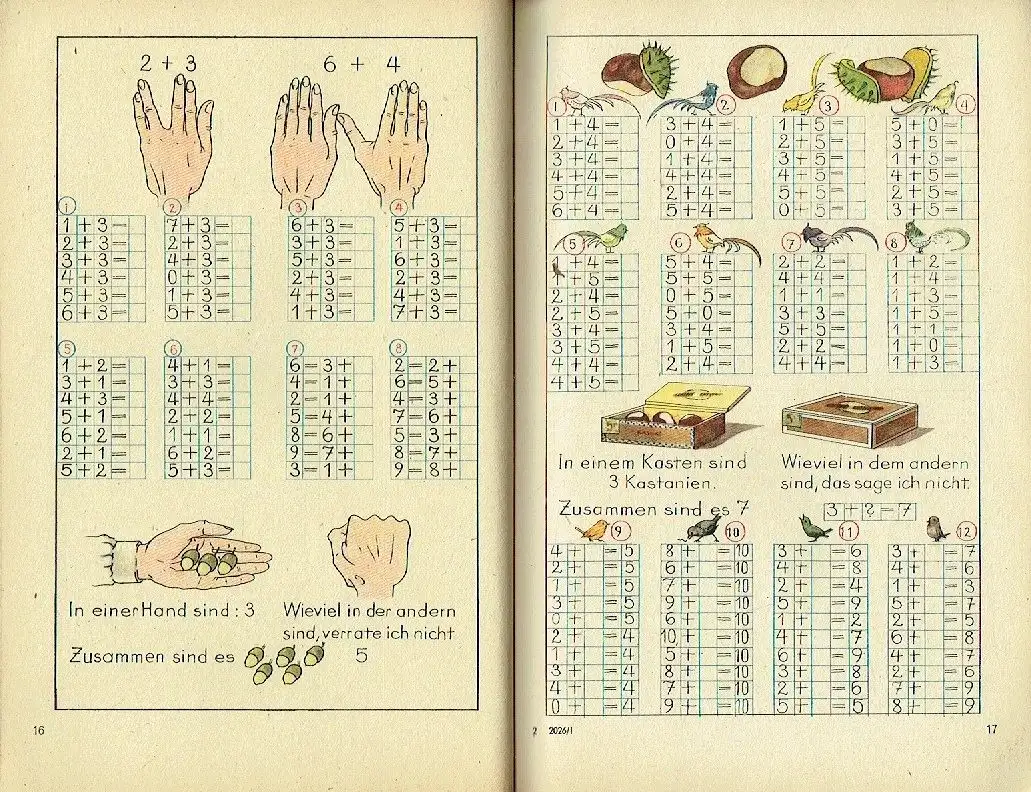 2 + 3 6 + 4
1 2 3 4
1+3= 7+3= 6+3= 5+3=
2+3= 2+3= 3+3= 1+3=
3+3= 4+3= 5+3= 6+3=
4+3= 0+3= 2+3= 2+3=
5+3= 1+3= 4+3= 4+3=
6+3= 5+3= 1+3= 7+3=
5 6 7 8
1+2= 4+1= 6=3+ 2=2+
3+1= 3+3= 4=1+ 6=5+
4+3= 4+4= 2=1+ 4=3+
5+1= 2+2= 5=4+ 7=6+
6+2= 1+1= 8=6+ 5=3+
2+1= 6+2= 9=7+ 8=7+
5+2= 5+3= 3=1+ 9=8+
In einer Hand sind: 3 Wieviel in der andern
sind, verrate ich nicht
Zusammen sind es 5
16
1 2 3 4
1+4= 3+4= 1+5= 5+0=
2+4= 0+4= 2+5= 3+5=
3+4= 1+4= 3+5= 1+5=
4+4= 4+4= 4+5= 4+5=
5+4= 2+4= 5+5= 2+5=
6+4= 5+4= 0+5= 3+5=
5 6 7 8
1+4= 5+4= 2+2= 1+2=
+5= 5+5= 4+4= 1+4=
2+4= 0+5= 1+1= 1+3=
2+5= 5+0= 3+3= 1+5=
3+4= 3+4= 5+5= 1+1=
3+5= 1+5= 2+2= 1+0=
4+4= 2+4= 4+4= 1+3=
4+5=
In einem Kasten sind Wieviel in dem andern
3 Kastanien. sind, das sage ich nicht
Zusammen sind es 7 3+?=7
9 10 11 12
4+ =5 8+ =10 3+ =6 3+ =7
2+ =5 6+ =10 4+ =8 4+ =6
1+ =5 7+ =10 2+ =4 1+ =3
3+ =5 9+ =10 5+ =9 5+ =7
0+ =5 6+ =10 1+ =2 2+ =5
2+ =4 10+ =10 4+ =7 6+ =8
1+ =4 5+ =10 6+ =9 4+ =7
3+ =4 8+ =10 3+ =8 2+ =6
4+ =4 7+ =10 2+ =6 7+ =9
0+ =4 9+ =10 5+ =5 8+ =9
2 2026/I 17